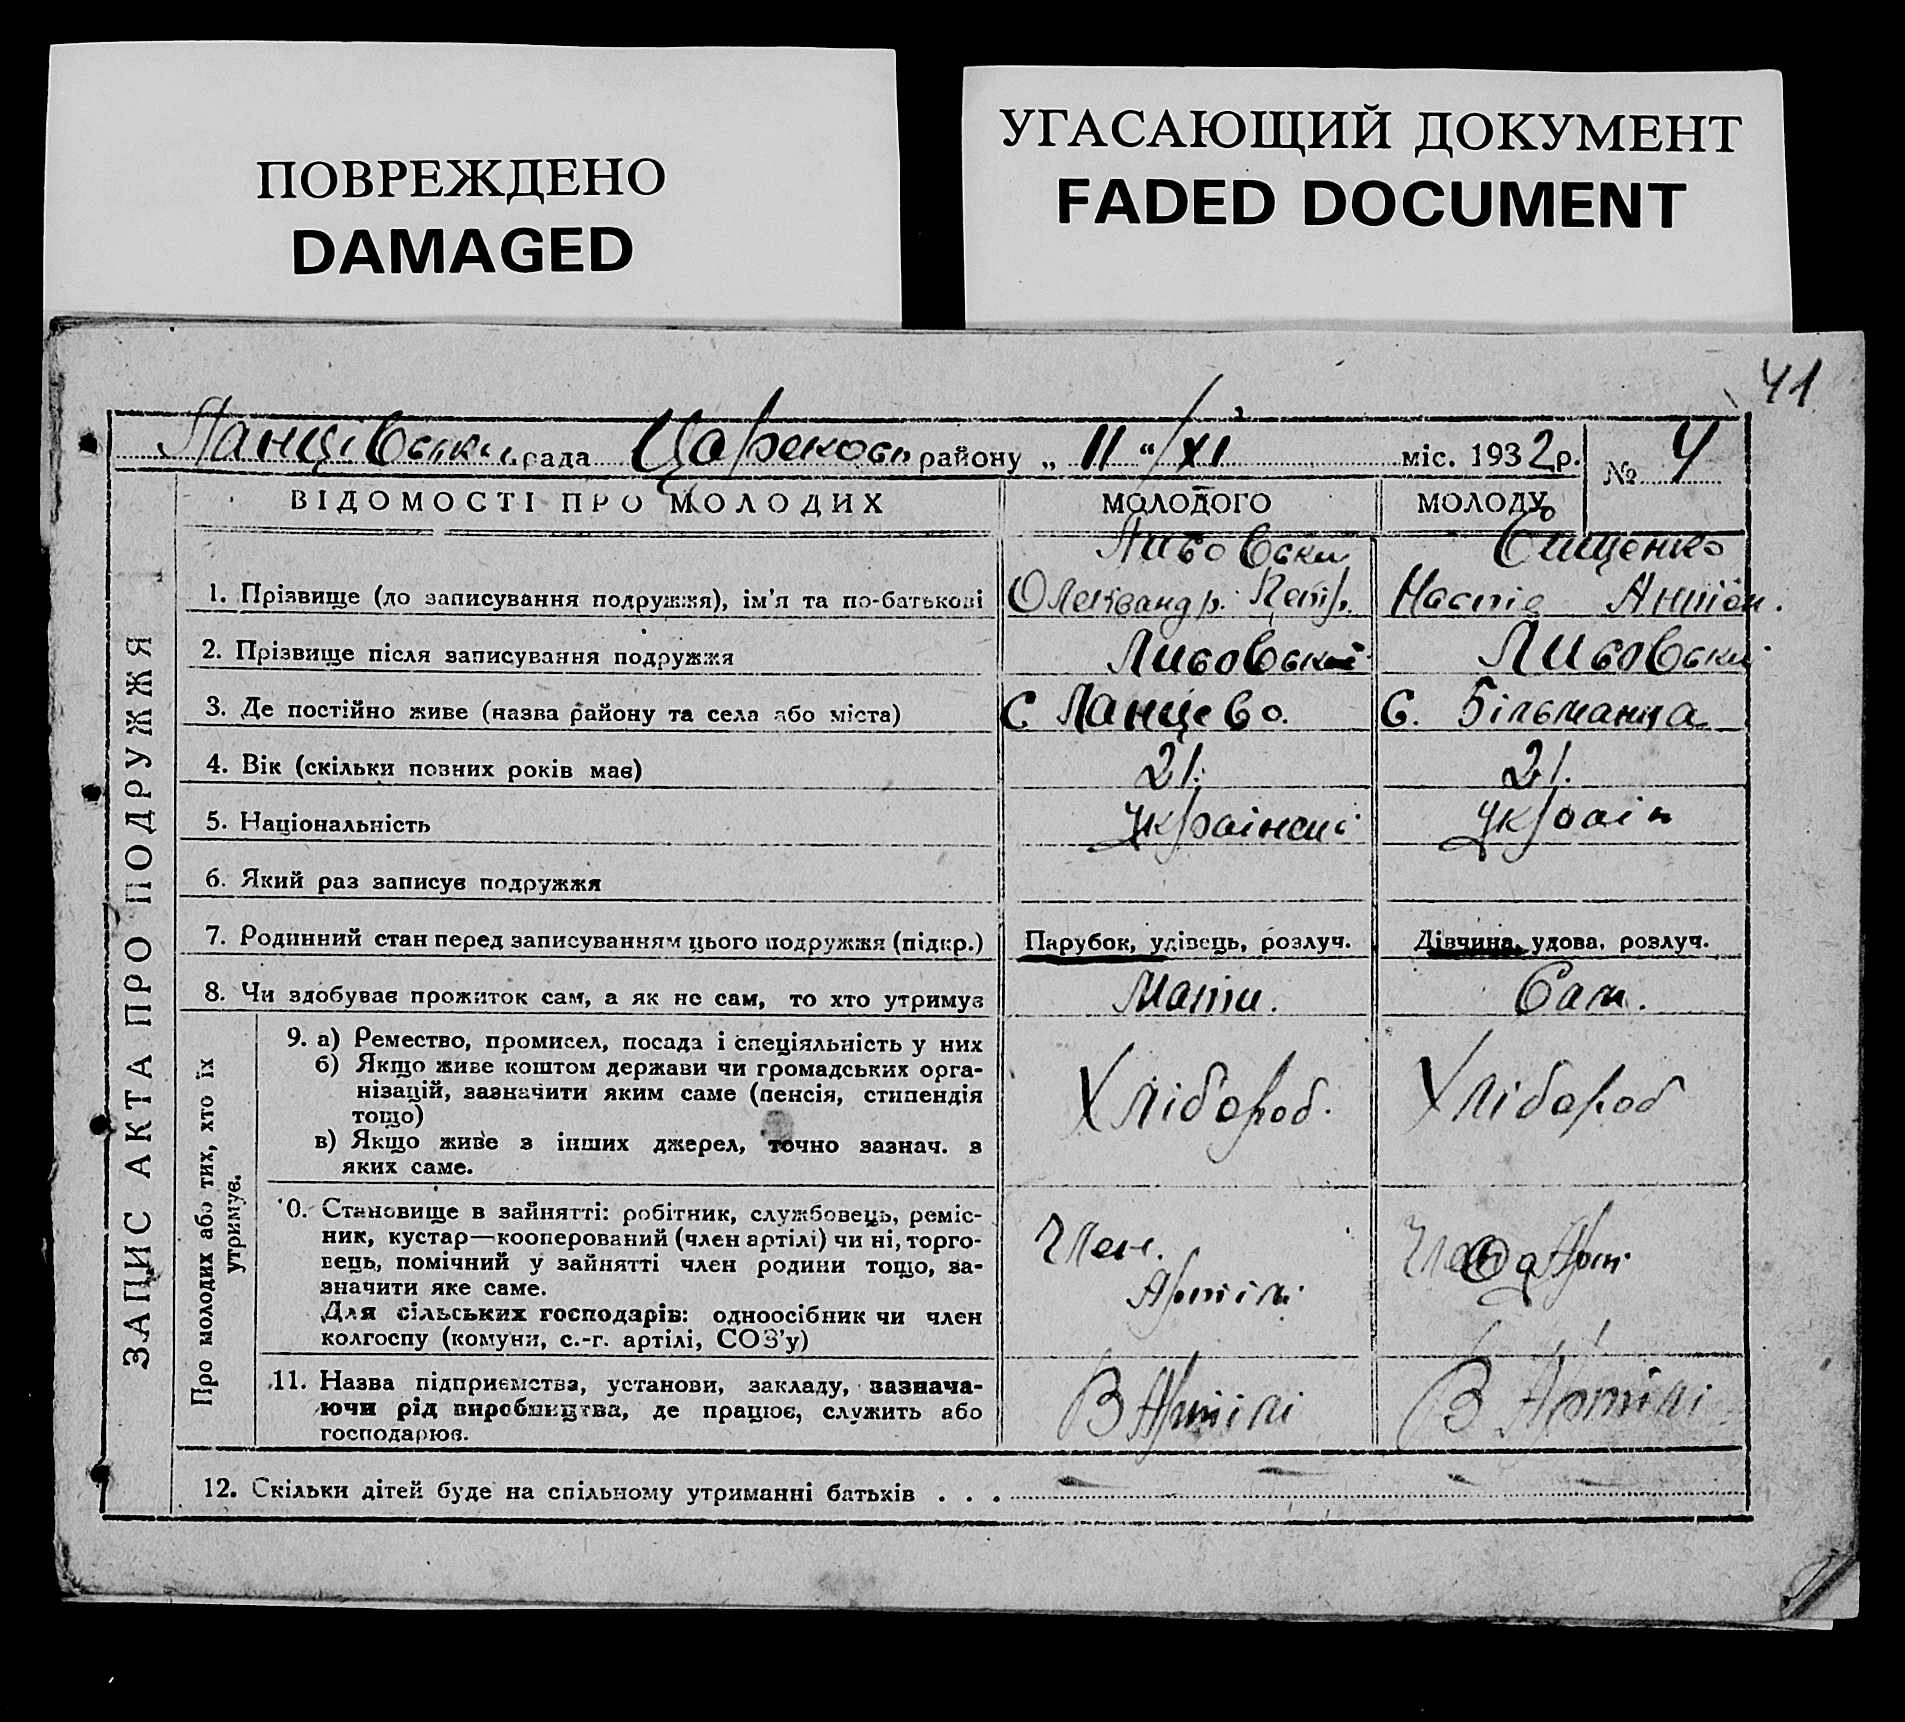 ПОВРЕЖДЕНО
DAMAGED
УГАСАЮЩИЙ ДОКУМЕНТ
FADED DOCUMENT
41
рада району „ 11 “ / XI міс. 1932 р. № 4
ЗАПИС АКТА ПРО ПОДРУЖЖЯ
ВІДОМОСТІ ПРО МОЛОДИХ МОЛОДОГО МОЛОДУ
Сищенко
1. Прізвище (до записування подружжя), ім'я та по-батькові Олександр. Петр. Настіє Антін.
2. Прізвище після записування подружжя
3. Де постійно живе (назва району та села або міста) С Ланцево. С. Більманка
4. Вік (скільки повних років має) 21. 21.
5. Національність Українсці Україн
6. Який раз записує подружжя
7. Родинний стан перед записуванням цього подружжя (підкр.) Парубок, удівець, розлуч. Дівчина, удова, розлуч.
8. Чи здобуває прожиток сам, а як не сам, то хто утримує Мати. Сам.
Про молодих або тих, хто їх утримує.
9. а) Ремество, промисел, посада і спеціяльність у них
б) Якщо живе коштом держави чи громадських орга-
нізацій, зазначити яким саме (пенсія, стипендія
тощо) Хлібороб. Хлібороб
в) Якщо живе з інших джерел, точно зазнач. з
яких саме.
10. Становище в зайнятті: робітник, службовець, реміс-
ник, кустар—кооперований (член артілі) чи ні, торго-
вець, помічний у зайнятті член родини тощо, за-
значити яке саме. Член. Артілі
Для сільських господарів: одноосібник чи член
колгоспу (комуни, с.-г. артілі, СОЗ'у)
11. Назва підприємства, установи, закладу, зазнача-
ючи рід виробництва, де працює, служить або В Артілі В Артілі
господарює.
12. Скільки дітей буде на спільному утриманні батьків . . .